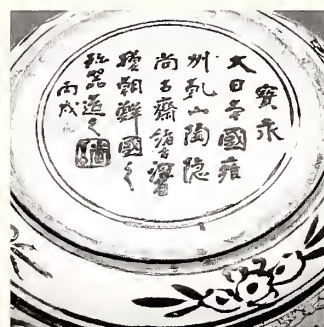 寳永
大日本國雍
州乾山陶隱
尚古齋
種朝鮮國之
造之
丙戌